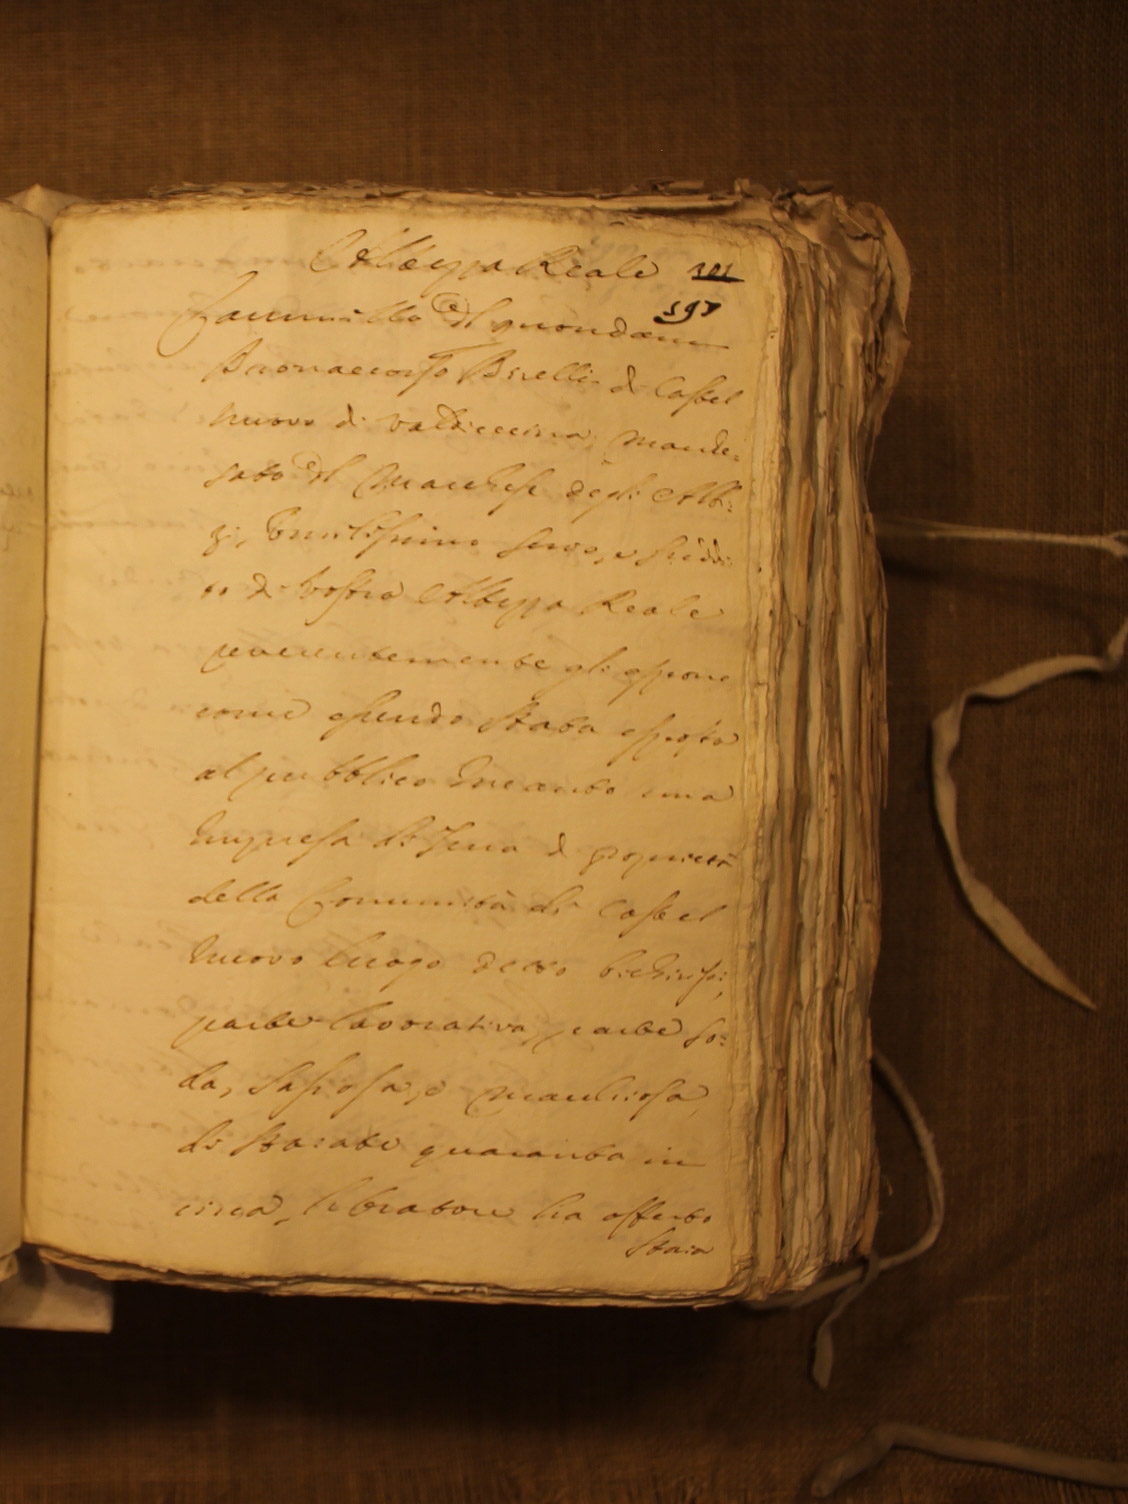 Altezza Reale 101
197
Cammillo del quondam
Buonaccorso Birelli di Castel
nuovo di Valdicecina, Mande-
tato del Marchese degli Albi-
zi, Umilissimo Servo, e Suddi-
to di Vostra Altezza Reale
reverentemente gli espone
come essendo Stata esposta
al pubblico Incanto una
Impresa di Terra di proprietà
della Comunità di Castel
nuovo luogo detto
parte lavorativa, parte so-
da, Sassosa, e macchiosa
di Staiate quaranta in
circa, l'Oratore ha offerto
Staia